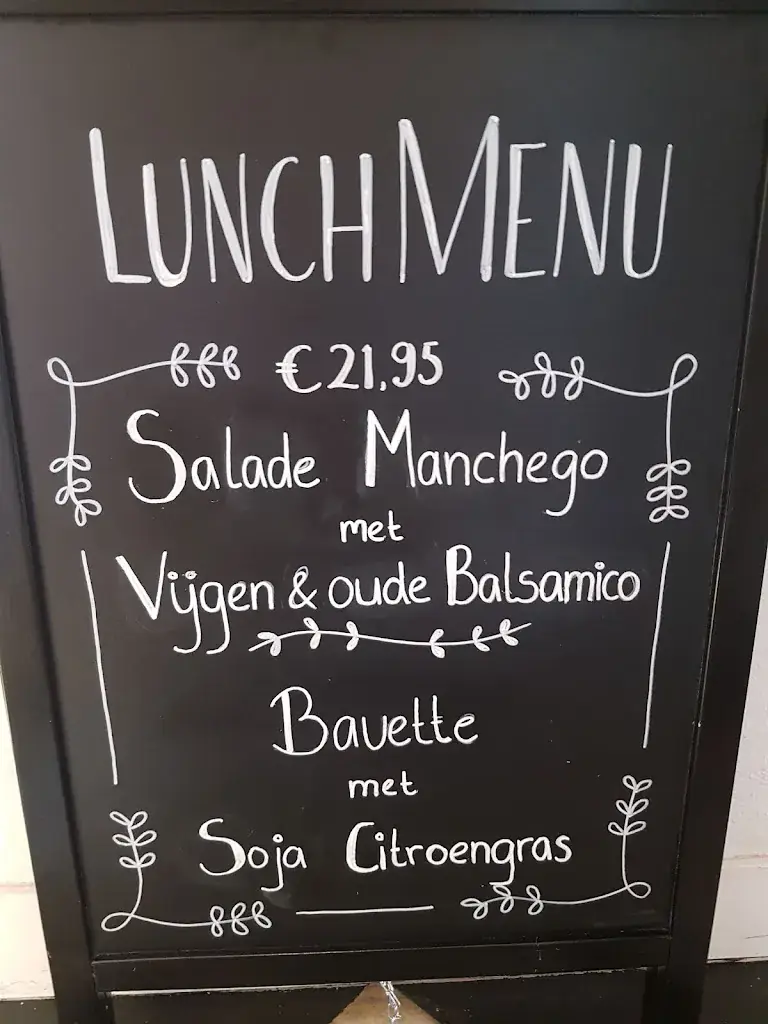 LUNCH MENU
€21,95
Salade Manchego
met
Vijgen & oude Balsamico
Bavette
met
Soja Citroengras